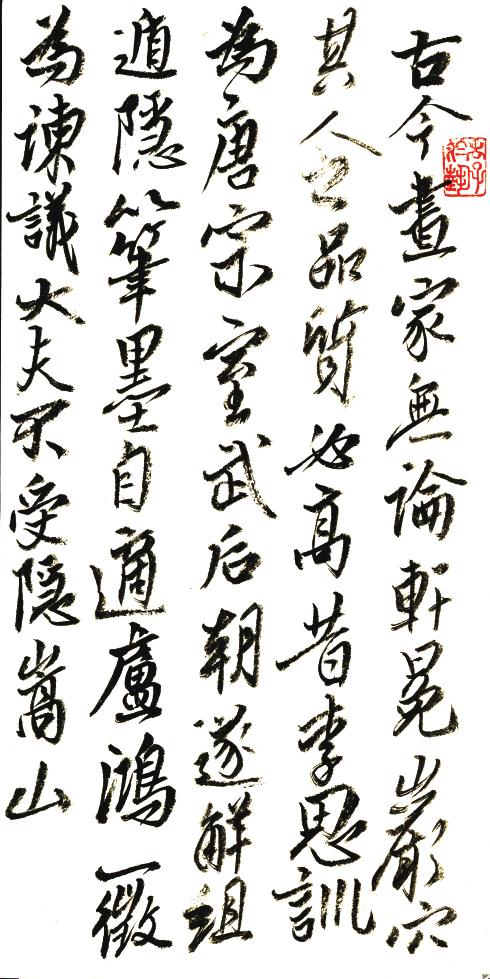 古今畫家無論軒冕巖穴
其人之品質必高昔李思訓
為唐宗室武后朝遂解組
遁隱以筆墨自適盧鴻一徵
為諫議大夫不受隱嵩山